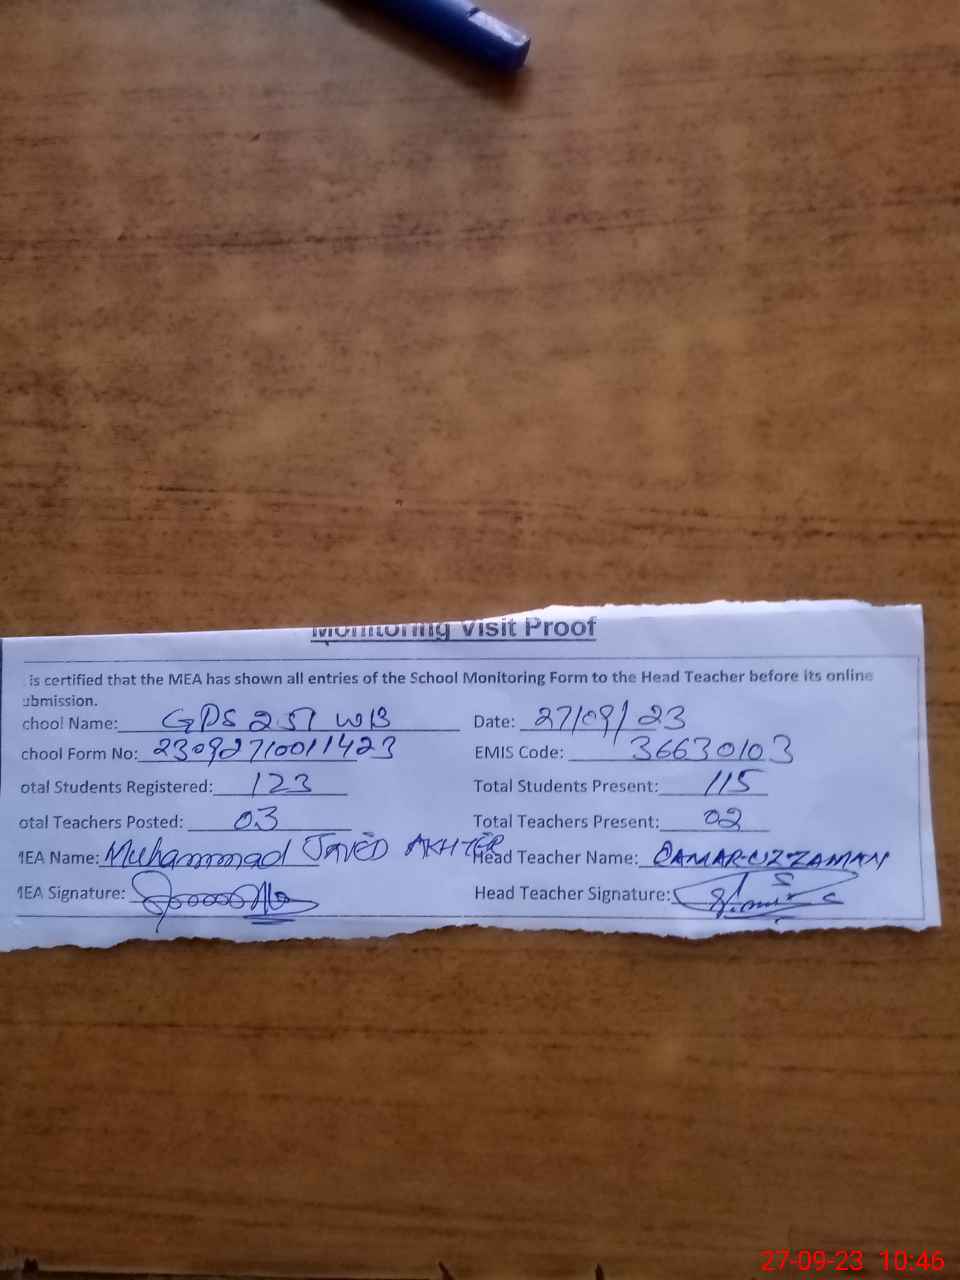 Monitoring Visit Proof
is certified that the MEA has shown all entries of the School Monitoring Form to the Head Teacher before its online
ubmission.
chool Name: GPS 251 WB Date: 27/09/23
chool Form No: 23092710011423 EMIS Code: 36630103
otal Students Registered: 123 Total Students Present: 115
otal Teachers Posted: 03 Total Teachers Present: 02
MEA Name: Muhammad JAVED AKHTER Head Teacher Name: QAMAR-UZ-ZAMAN
MEA Signature: Head Teacher Signature:
27-09-23 10:46